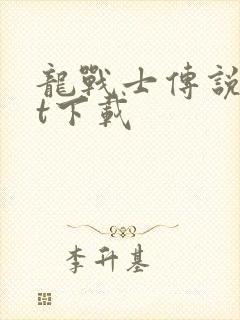 龍戰士傳說
t下載
李升基